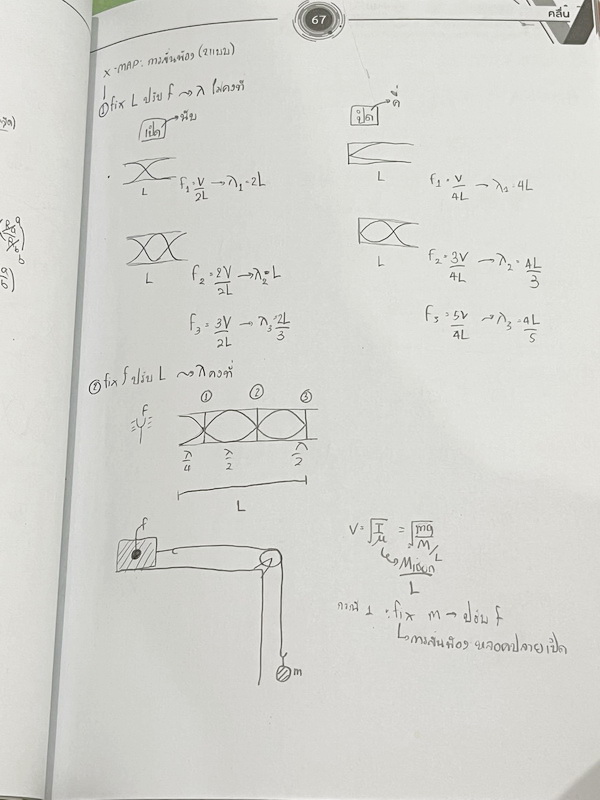 67
คลื่น
X-MAP: การสั่นพ้อง (2แบบ)
① fix L ปรับ f → λ ไม่คงที่
เปิด → นับ
ปิด → คี่
L
f₁ = V/2L → λ₁ = 2L
L
f₁ = V/4L → λ₁ = 4L
L
f₂ = 2V/2L → λ₂ = L
L
f₂ = 3V/4L → λ₂ = 4L/3
f₃ = 3V/2L → λ₃ = 2L/3
f₃ = 5V/4L → λ₃ = 4L/5
② fix f ปรับ L → λ คงที่
① ② ③
f
λ/4 λ/2 λ/2
L
f
V = √T/μ = √mg/M/L
→ Mเชือก/L
กรณี 1 : fix m → ปรับ f
การสั่นพ้อง หลอดปลายเปิด
m